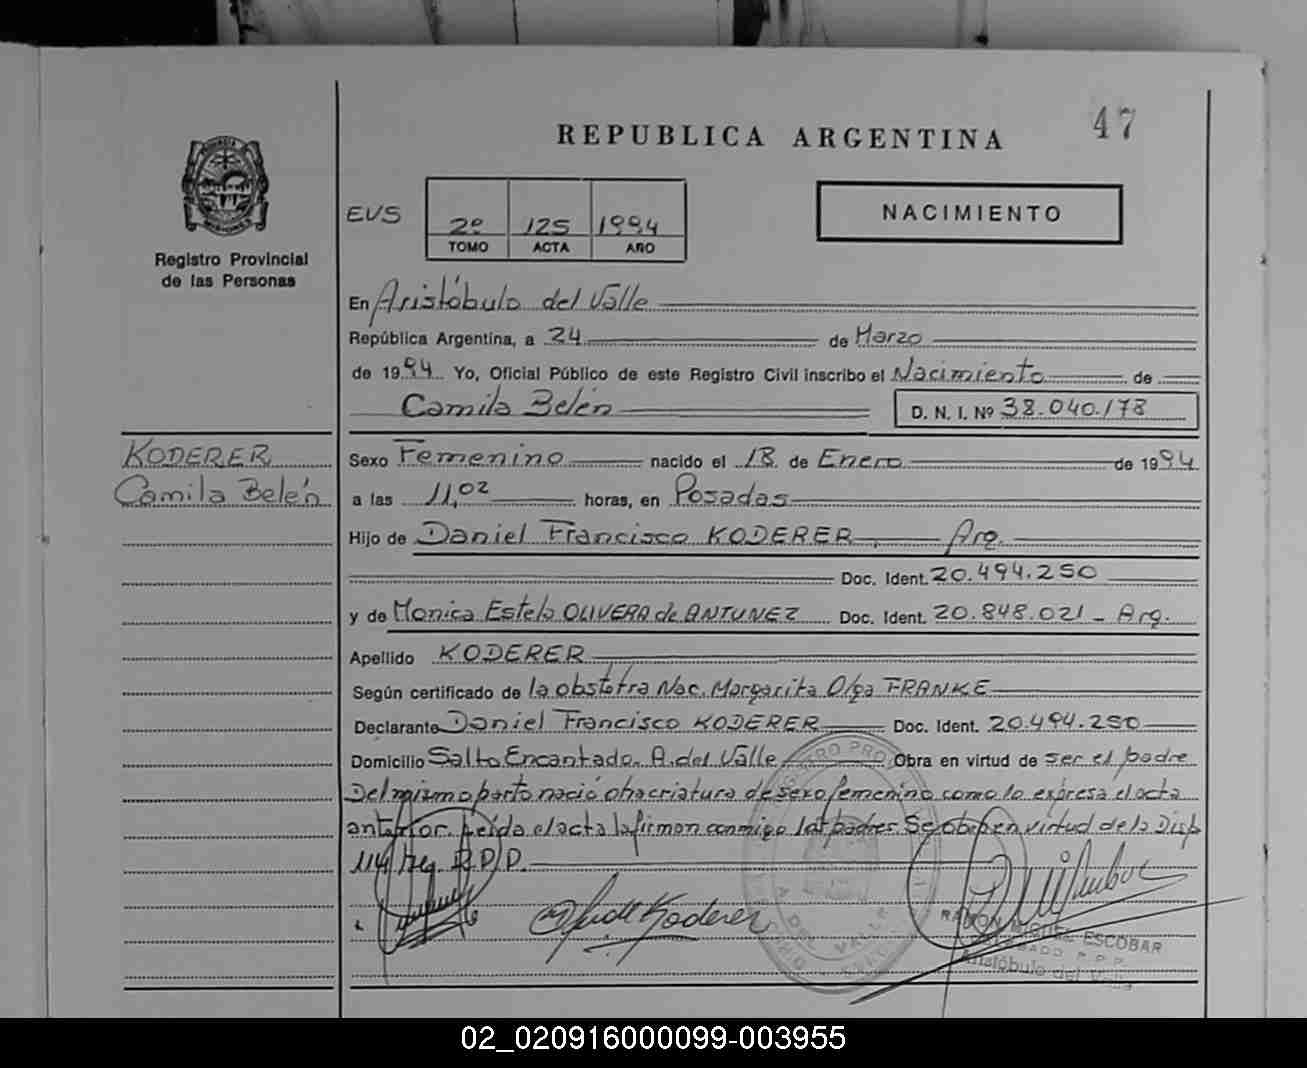 47
REPUBLICA ARGENTINA
NACIMIENTO
Registro Provincial
de las Personas
EVS
2º 125 1994
TOMO ACTA AÑO
En Aristóbulo del Valle
República Argentina, a 24 de Marzo
de 1994 Yo, Oficial Público de este Registro Civil inscribo el Nacimiento de
Camila Belén D. N. I. Nº 38.040.178
KODERER
Camila Belén
Sexo Femenino nacido el 18 de Enero de 1994
a las 11,02 horas, en Posadas
Hijo de Daniel Francisco KODERER, Arg.
Doc. Ident. 20.494.250
y de Monica Estela OLIVERA de ANTUNEZ Doc. Ident. 20.848.021 - Arg.
Apellido KODERER
Según certificado de la obstetra Nac. Margarita Olga FRANKE
Declarante Daniel Francisco KODERER Doc. Ident. 20.494.250
Domicilio Salto Encantado. A. del Valle Obra en virtud de ser el padre
Del mismo parto nació otra criatura de sexo femenino como lo expresa el acta
anterior. Leída el acta la firman conmigo los padres. Se obra en virtud de la Disp
114 Reg. P.D.P.
Koderer
RAMON MIGUEL ESCOBAR
DELEGADO R.P.P.
Aristóbulo del Valle
02_020916000099-003955